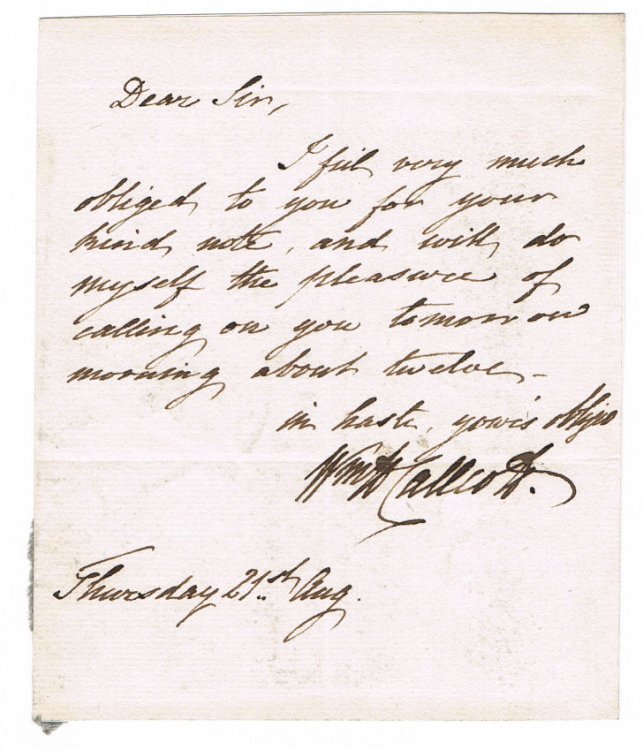 Dear Sir,
I feel very much
obliged to you for your
kind note, and will do
myself the pleasure of
calling on you tomorrow
morning about twelve –
in haste, yours oblig'd
Wm H Callcott.
Thursday 21st Aug.